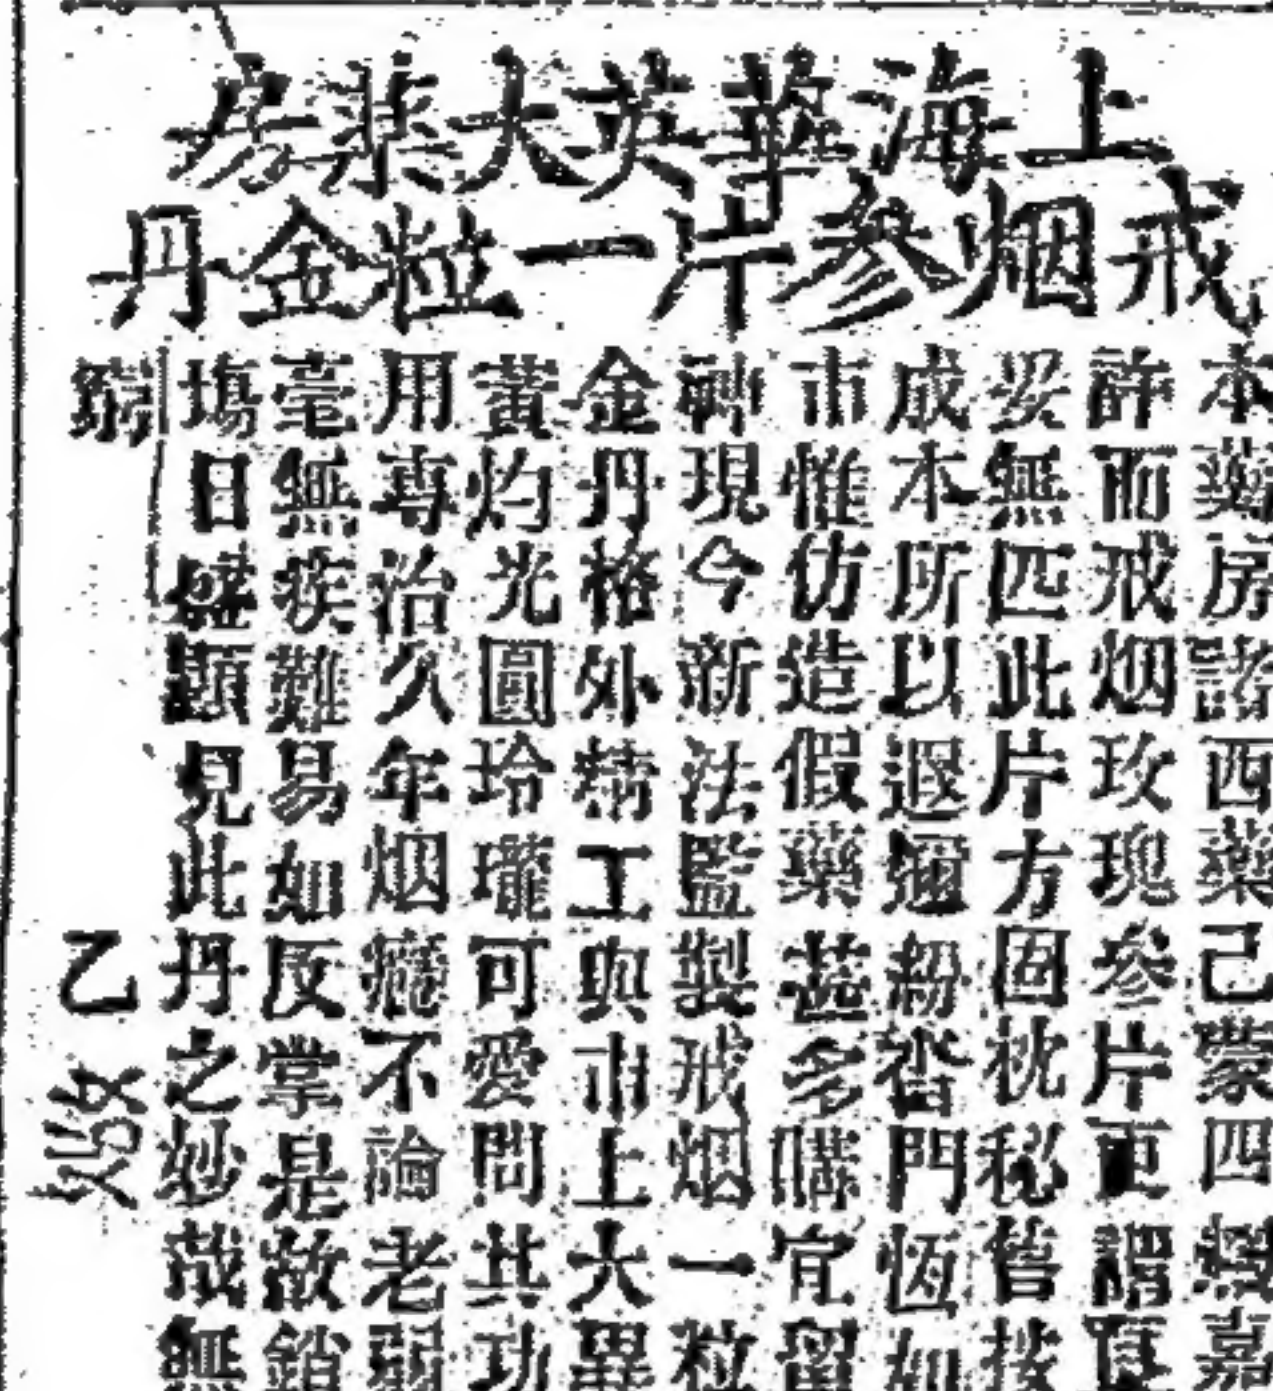 上海華英大藥房
戒烟參片一粒金丹
本藥房諸西藥已蒙四嘉
許而戒烟玫瑰參片更謂
妥無匹此片方因枕秘皆按
成本所以遐邇紛沓門恆如
市惟仿造假藥甚多購宜留
神現今新法監製戒烟一粒
金丹格外精工與市上大異
黃灼光圓玲瓏可愛問其功
用專治久年烟癮不論老弱
毫無疾難易如反掌是故銷
塲日盛顯見此丹之妙哉無
乙